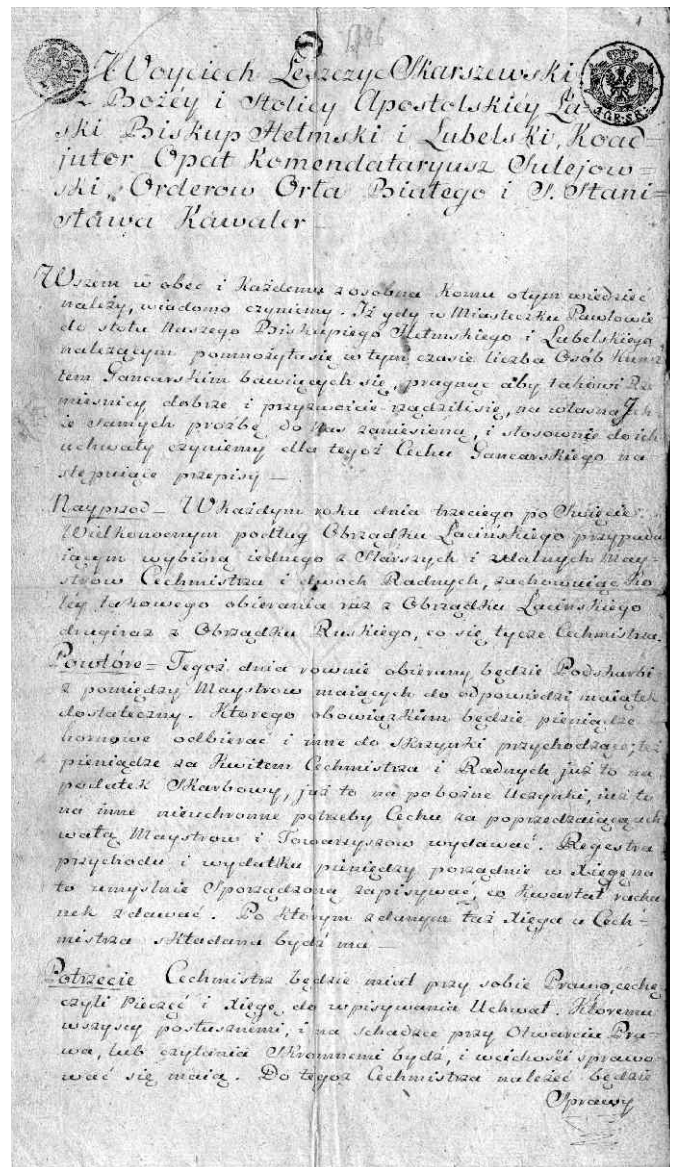 1796
Woyciech Leszczyc Skarszewski
z Bożéy i Stolicy Apostolskiéy Ła-
ski Biskup Hełmski i Lubelski, Koad-
jutor Opat Komendataryusz Sulejow-
ski, Orderow Orła Białego i S. Stani-
sława Kawaler
Wszem w obec i Każdemu zosobna Komu otym wiedzieć
należy, wiadomo czyniemy. Iż gdy w Miasteczku Pawłowie
do stołu Naszego Biskupiego Hełmskiego i Lubelskiego
należącym pomnożyła się w tym czasie liczba Osób Kunsz-
tem Gancarskim bawiących się, pragnąc aby takowi Rze-
mieslnicy dobrze i przyzwoicie rządzili się, na własną Ich
że samych proźbę do Nas zaniesioną, i stosownie do ich
uchwały czyniemy dla tegoż Cechu Gancarskiego na-
stępuiące przepisy —
Nayprzod — W każdym roku dnia trzeciego po Swięcie
Wielkonocnym podług Obrządku Łacińskiego przypada-
iącym wybiorą iednego z Starszych i zdalnych May-
strow Cechmistrza i dwoch Radnych, zachowuiąc Ko-
ley takowego obierania raz z Obrządku Łacińskiego
drugi raz z Obrządku Ruskiego, co się tycze Cechmistrza.
Powtóre = Tegoż dnia rownie obierany będzie Podskarbi
z pomiędzy Maystrow maiących do odpowiedzi maiątek
dostateczny. Ktorego obowiązkiem będzie pieniądze
kornowe odbierać i inne do skrzynki przychodzące; też
pieniądze za Kwitem Cechmistrza i Radnych już to na
podatek Skarbowy, już to na pobożne Uczynki, już to
na inne nieuchronne potrzeby Cechu za poprzedzaiącą uch-
wałą Maystrow i Towarzyszow wydawać. Regestra
przychodu i wydatku pieniędzy porządnie w Xięgę na
to umyslnie Sporządzoną zapisywać, co Kwartał rachu
nek zdawać. Po ktorym zdanym taż Xięga u Cech-
mistrza składana bydź ma —
Potrzecie Cechmistrz będzie miał przy sobie Prawo, cechę
czyli Pieczęć i Xięgę do wpisywania Uchwał. Ktoremu
wszyscy posłusznemi, i na schadzce przy Otwarciu Pra-
wa, lub czytania Skromnemi bydź, i wcichości sprawo-
wać się maią. Do tegoż Cechmistrza należeć będzie
Sprawy